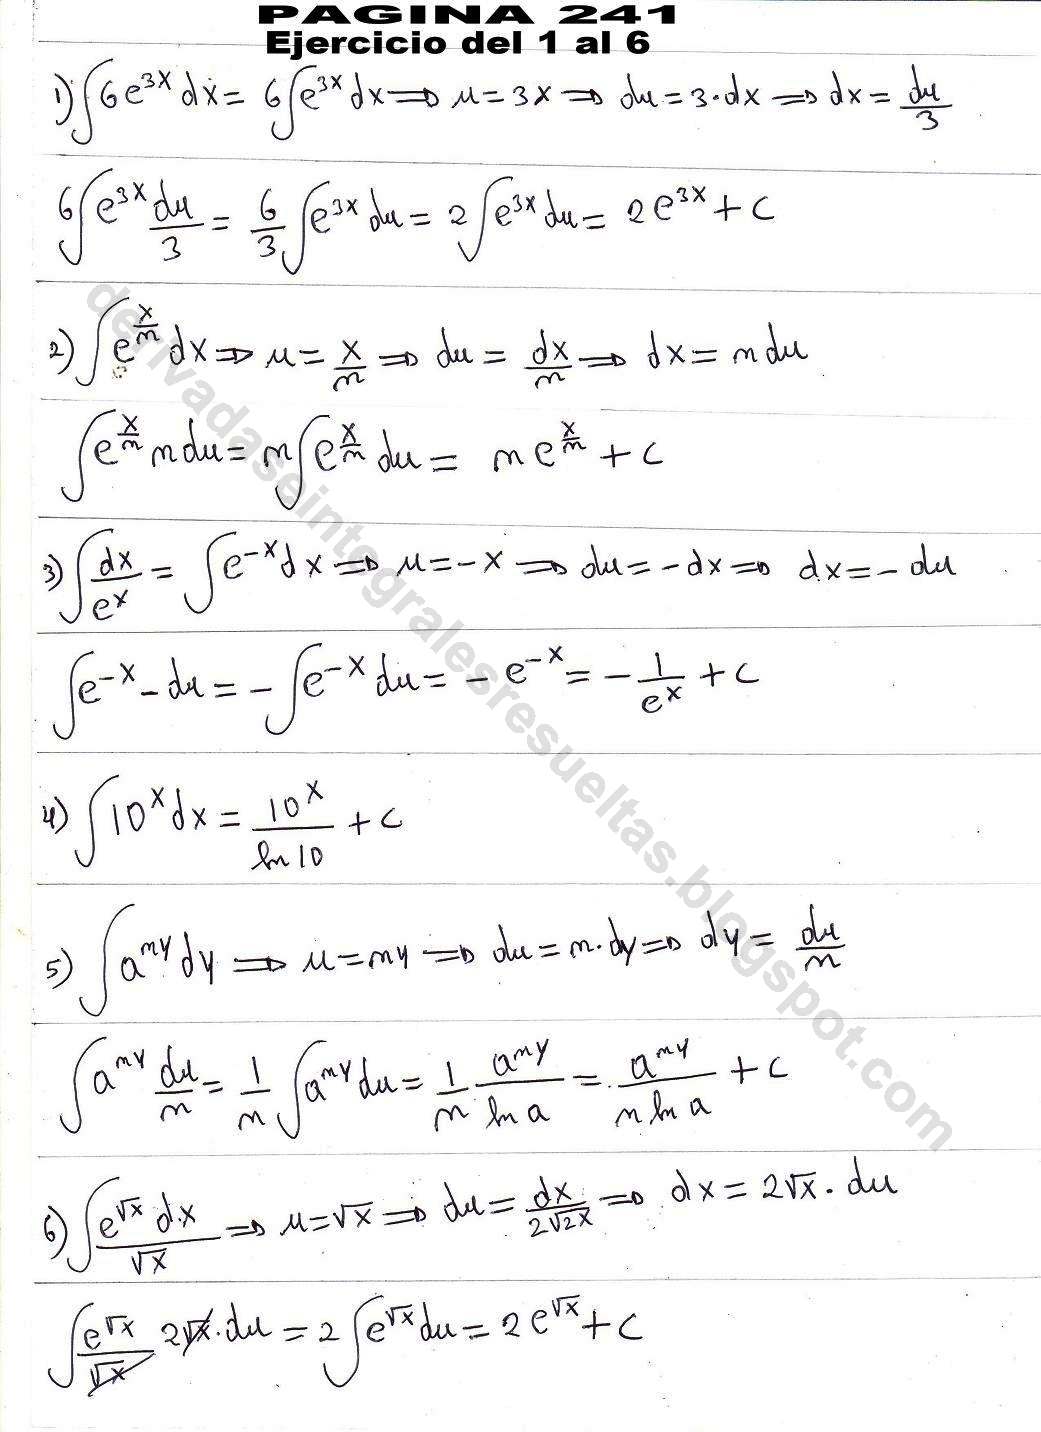 PAGINA 241
Ejercicio del 1 al 6
1) ∫6e^{3x} dx = 6∫e^{3x} dx ⇒ u = 3x ⇒ du = 3·dx ⇒ dx = du/3
6∫e^{3x} du/3 = 6/3 ∫e^{3x} du = 2∫e^{3x} du = 2e^{3x} + c
2) ∫e^{x/n} dx ⇒ u = x/n ⇒ du = dx/n ⇒ dx = n du
∫e^{x/n} n du = n∫e^{x/n} du = n e^{x/n} + c
3) ∫dx/e^x = ∫e^{-x} dx ⇒ u = -x ⇒ du = -dx ⇒ dx = -du
∫e^{-x} - du = -∫e^{-x} du = -e^{-x} = -1/e^x + c
4) ∫10^x dx = 10^x/ln 10 + c
5) ∫a^{ny} dy ⇒ u = ny ⇒ du = n·dy ⇒ dy = du/n
∫a^{ny} du/n = 1/n ∫a^{ny} du = 1/n a^{ny}/ln a = a^{ny}/n ln a + c
6) ∫e^{√x} dx/√x ⇒ u = √x ⇒ du = dx/2√2x ⇒ dx = 2√x · du
∫e^{√x}/√x 2√x · du = 2∫e^{√x} du = 2e^{√x} + c
derivadaseintegralesresueltas.blogspot.com